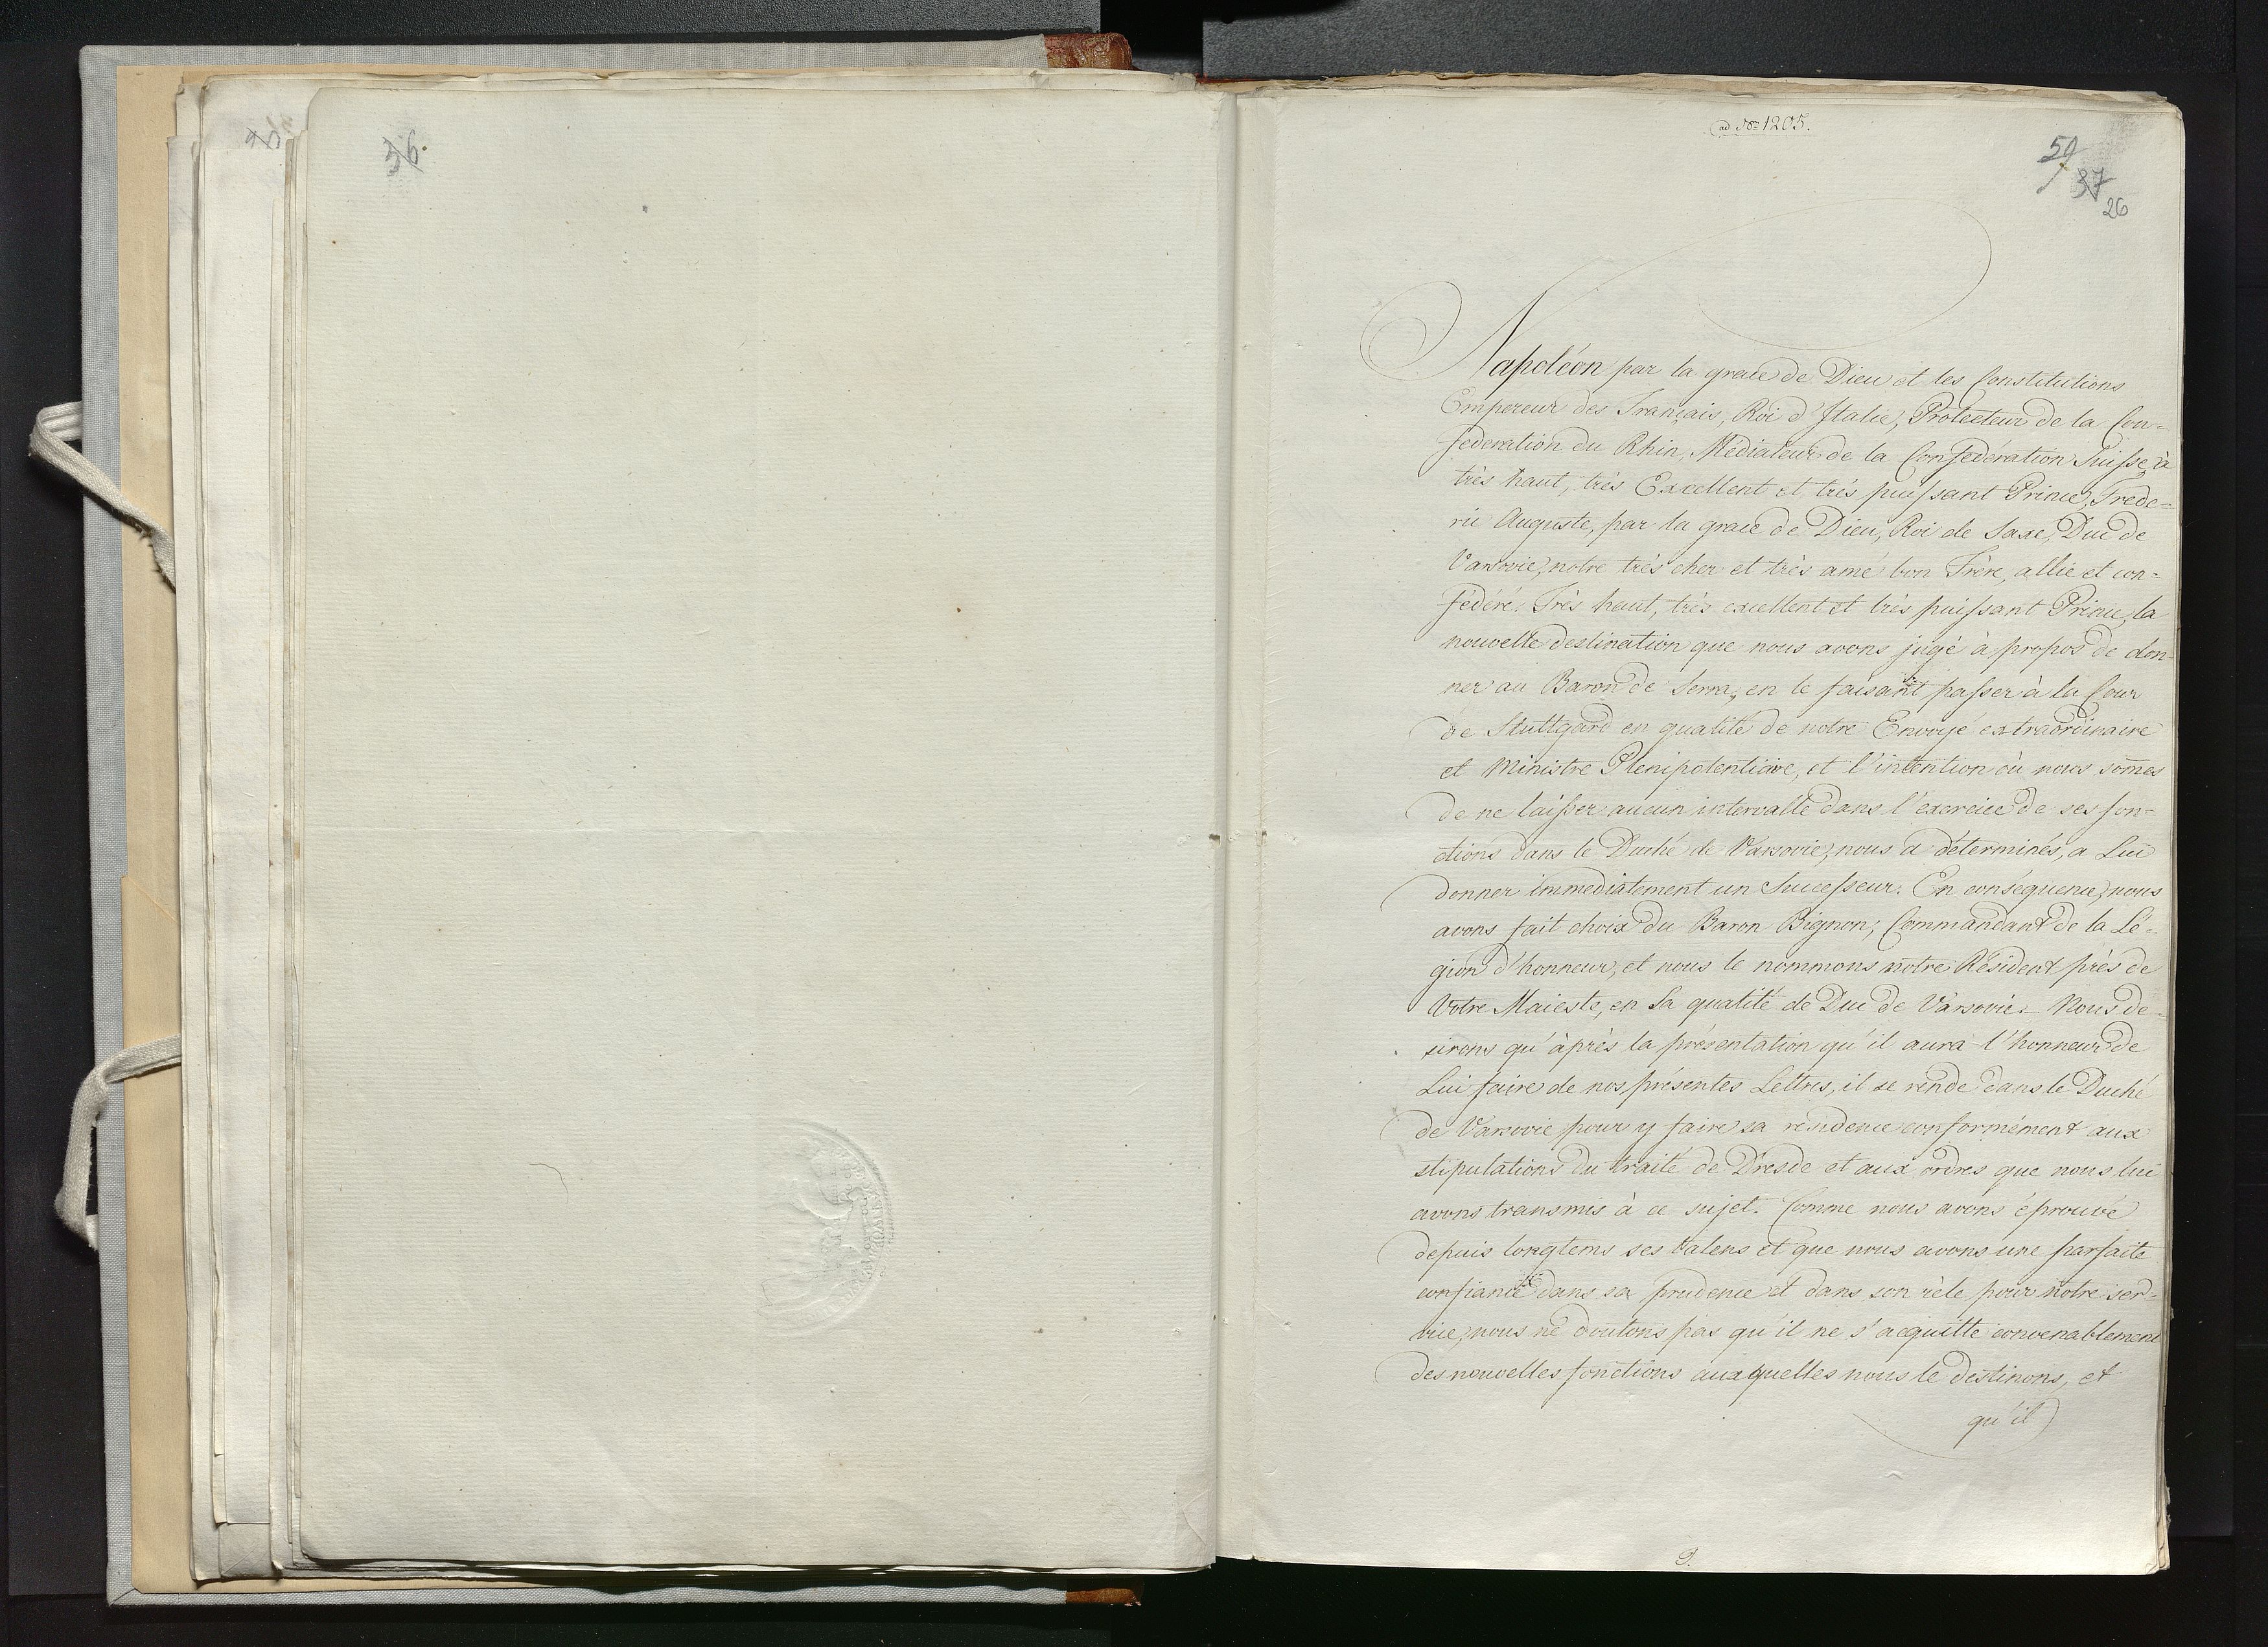 36
ad Nr 1205.
59
37
26
Napoléon par la grace de Dieu et les Constitutions
Empereur des Français, Roi d'Italie, Protecteur de la Con-
féderation du Rhin, Médiateur de la Conféderation Suisse, à
très haut, très Excellent et très puissant Prince, Frede-
ric Auguste, par la grace de Dieu, Roi de Saxe, Duc de
Varsovie, notre très cher et très amé bon Frère, allié et con-
fédéré. Très haut, très excellent et très puissant Prince, la
nouvelle destination que nous avons jugé à propos de don-
ner au Baron de Serra, en le faisant passer à la Cour
de Stuttgard en qualité de notre Envoyé extraordinaire
et Ministre Plenipotentiaire, et l'intention où nous som̄es
de ne laisser aucun intervalle dans l'exercice de ses fon-
ctions dans le Duché de Varsovie, nous a déterminés, a Lui
donner immediatement un Successeur. En conséquence, nous
avons fait choix du Baron Bignon, Commandant de la Lé-
gion d'honneur, et nous le nommons notre Résident près de
Votre Maieste, en Sa qualité de Duc de Varsovie. Nous de-
sirons qu'àprès la présentation qu'il aura l'honneur de
Lui faire de nos présentes Lettres, il se rende dans le Duché
de Varsovie pour y faire sa résidence conformément aux
stipulations du traité de Dresde et aux ordres que nous lui
avons transmis à ce sujet. Comme nous avons éprouvé
depuis longtems ses talens et que nous avons une parfaite
confiance dans sa prudence et dans son zèle pour notre ser-
vice, nous ne doutons pas qu'il ne s'acquitte convenablement
des nouvelles fonctions auxquelles nous le destinons, et
qu'il